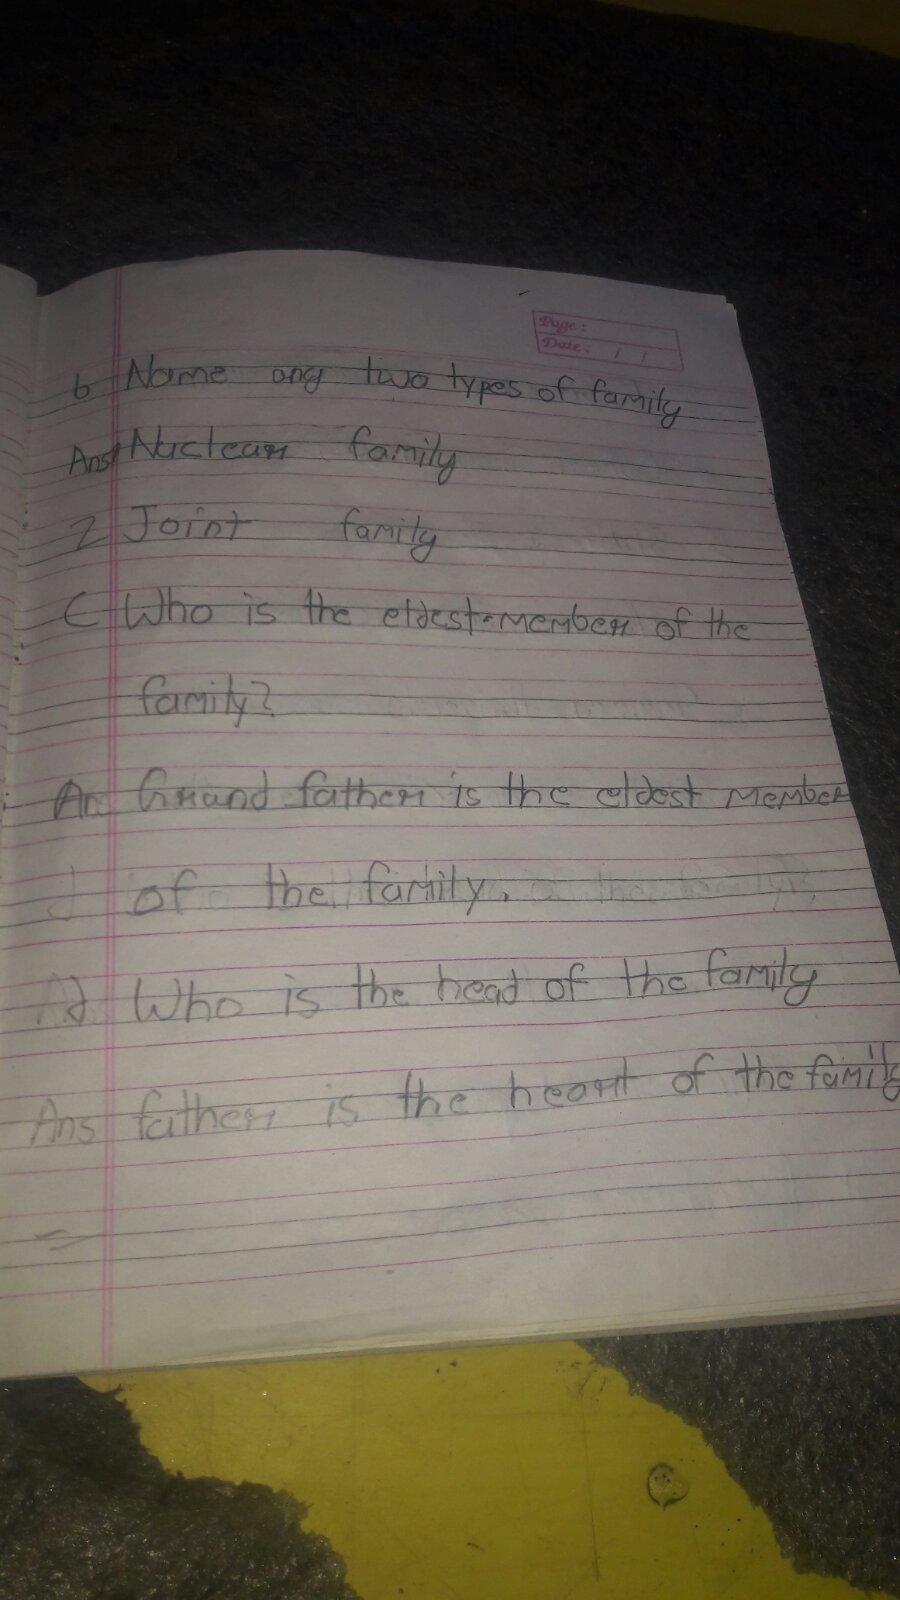 Page:
Date: / /
b Name any two types of family
Ans Nuclear family
2 Joint family
C Who is the eldest member of the
family?
An Grand father is the eldest member
of the family.
d Who is the head of the family
Ans father is the heart of the family